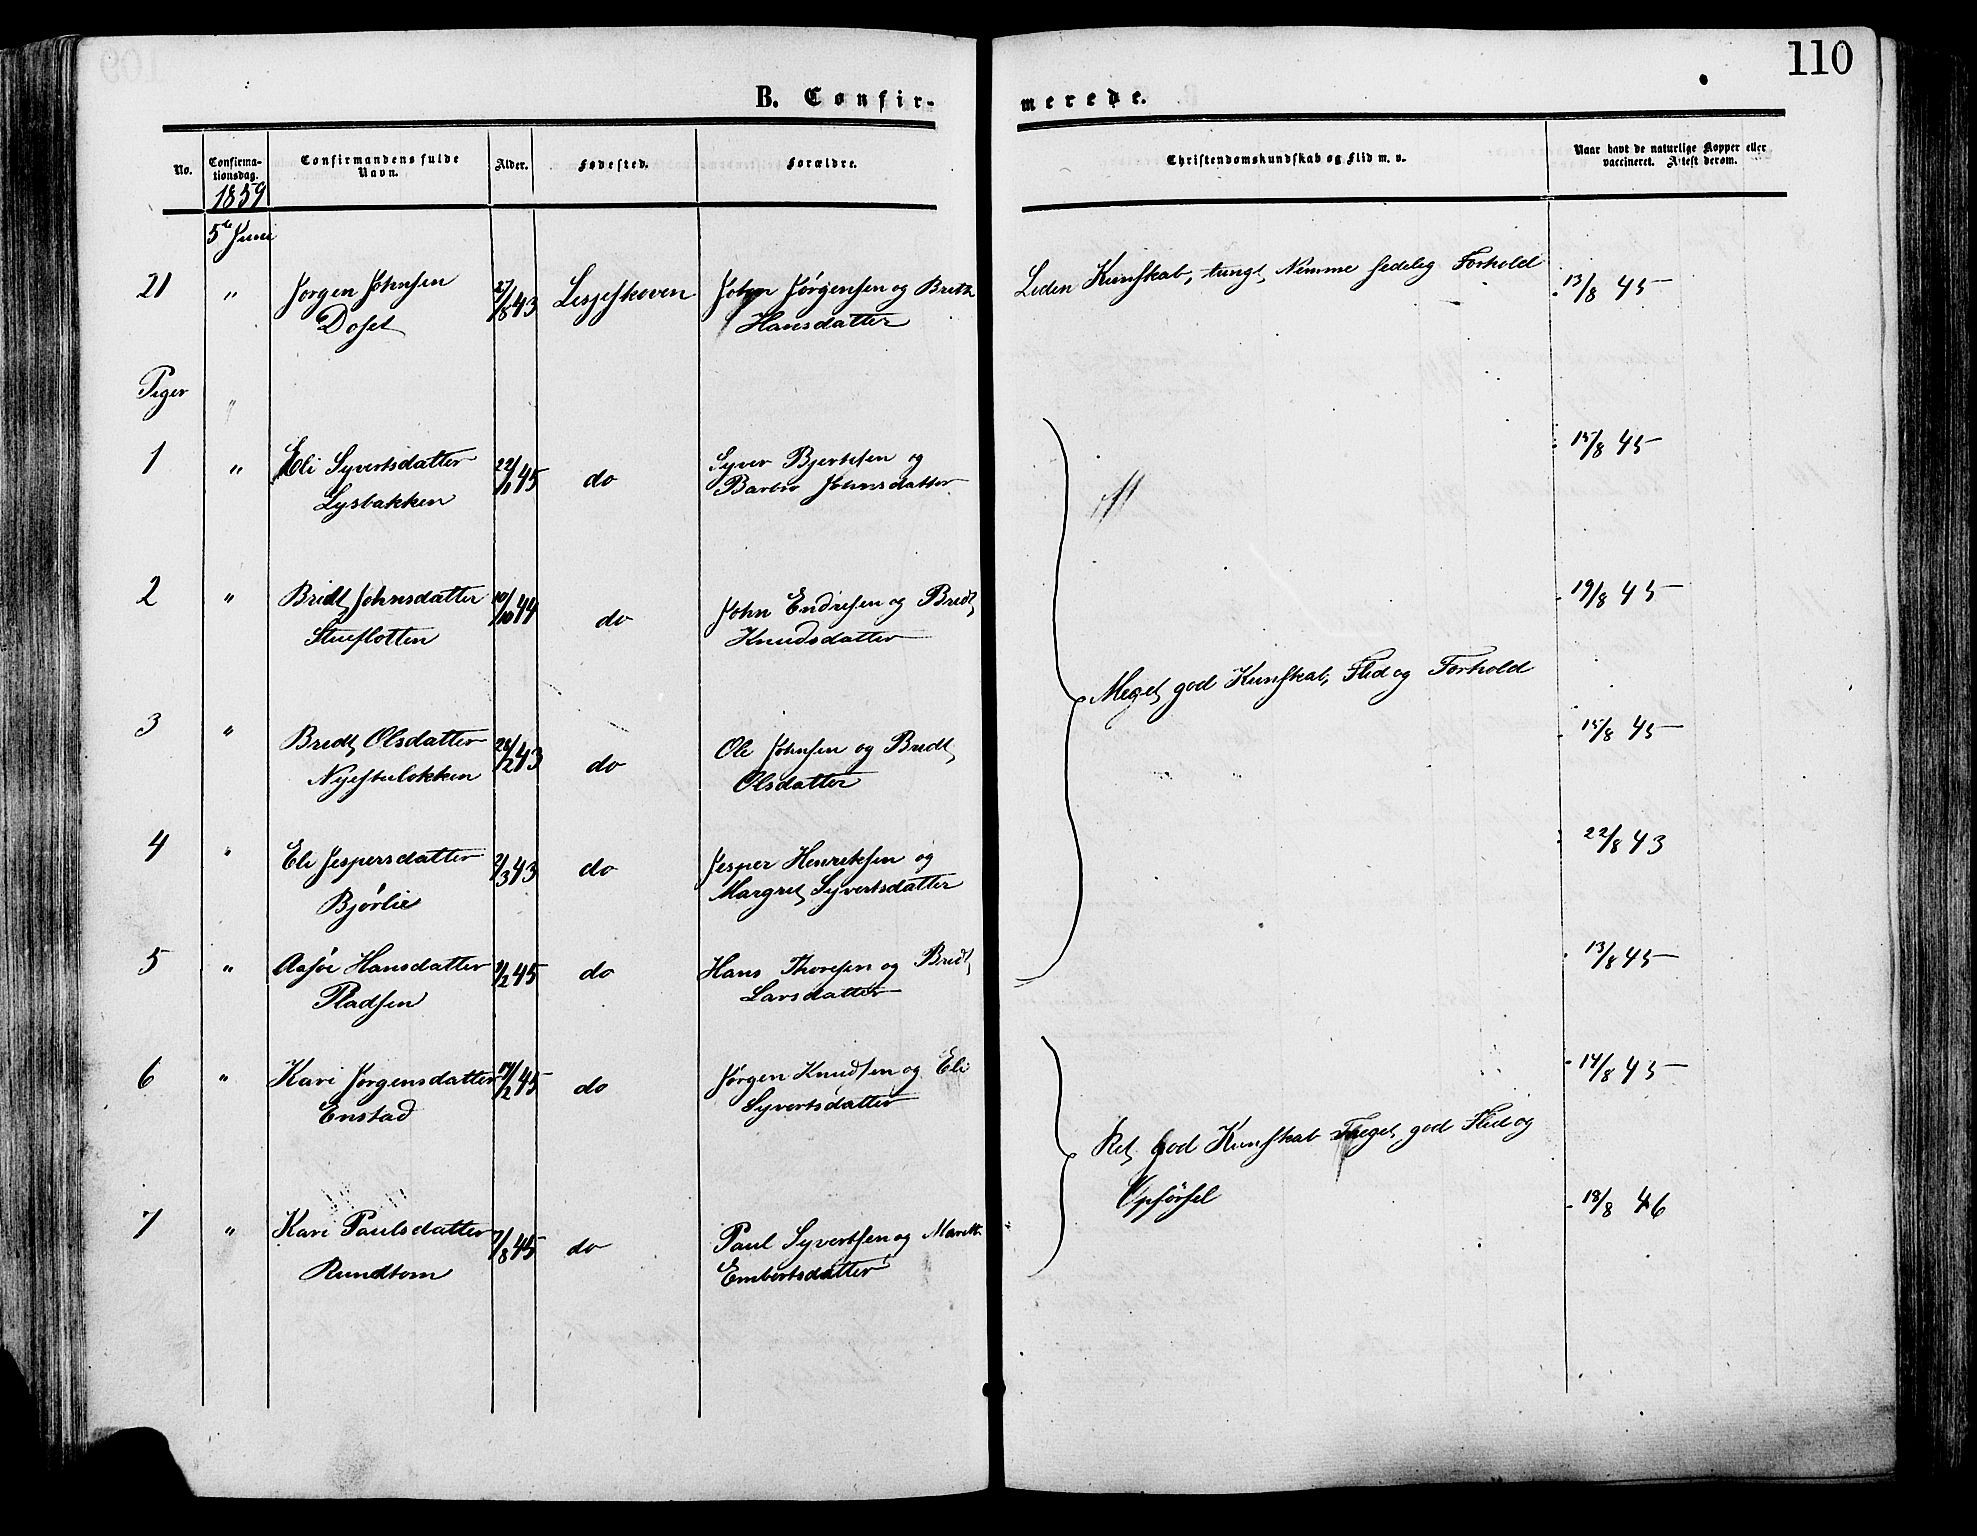 110
B. Confir-
merede.
No.
Confirma-
tionsdag.
1859
Confirmandens fulde
Navn.
Alder.
Fødested.
Forældre.
Christendomskundskab og Flid m. v.
Naar havt de naturlige Kopper eller
vaccineret. Attest derom.
5te Juni
21 " Jørgen Johnsen 27/8 43 Lesjeskoven John Jørgensen og Brit Liden Kunskab, tungt Nemme sedelig Forhold 13/8 45
Doset Hansdatter
Piger "
1 " Eli Syvertsdatter 22/1 45 do Syver Bjertesen og 15/8 45
Lysbakken Barbro Johnsdatter
2 " Bredt Johnsdatter 10/10 44 do John Endresen og Bredt 19/8 45
Stueflotten Knudsdatter
Meget god Kunskab, Flid og Forhold
3 " Bredt Olsdatter 28/12 43 do Ole Johnsen og Bredt 15/8 45
Nyestuløkken Olsdatter
4 " Eli Jespersdatter 2/3 43 do Jesper Henriksen og 22/8 43
Bjørlie Margret Syvertsdatter
5 " Hansdatter 45 do Hans Thoresen og Bredt 13/8 45
Pladsen Larsdatter
6 " Kari Jørgensdatter 45 do Jørgen Knudsen og Eli 14/8 45
Enstad Syvertsdatter
Ret god Kunskab meget god Flid og
Opførsel
7 " Kari Paulsdatter 7/8 45 do Paul Syvertsen og Marit 18/8 46
Rundtom Embertsdatter